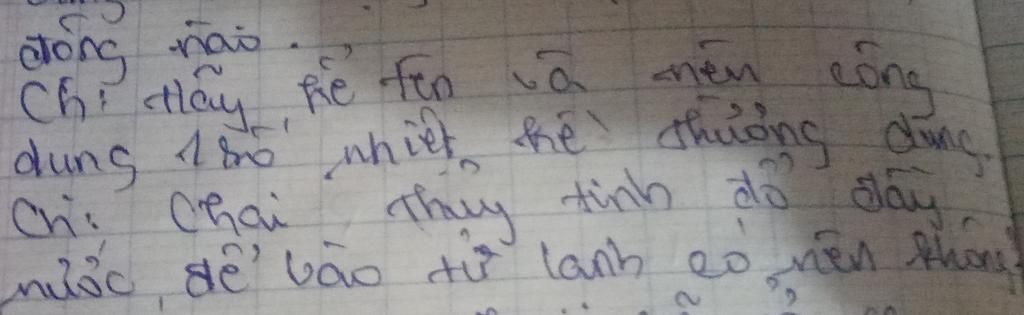 đồng nào.
Ch: Hãy kể tên và nêu công
dụng 1 số nhiệt kế thường dùng.
Ch: Chai thủy tinh đổ đầy
nước, để vào tủ lạnh có nên không